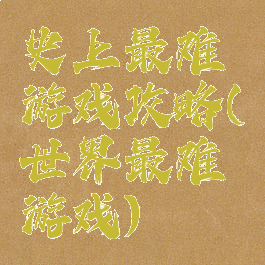 史上最难
游戏攻略(
世界最难
游戏)